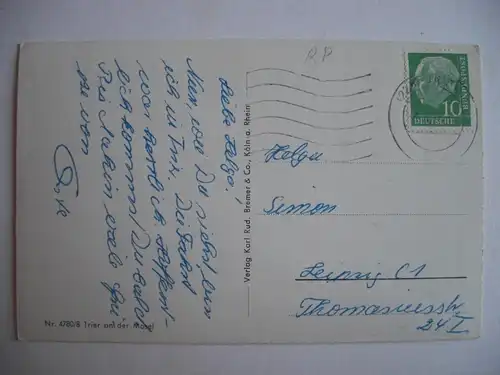 R P
DEUTSCHE
BUNDESPOST
10
Liebe Helga!
Nun, wie Du siehst, bin
ich in Trier. Die Fahrt
war herrlich. Hoffent-
lich kommst Du bald
sie von
Helga
Simon
Leipzig C1
Thomasiusstr.
24 I
Verlag Karl Rud. Bremer & Co., Köln a. Rhein
Nr. 4780/8 Trier an der Mosel